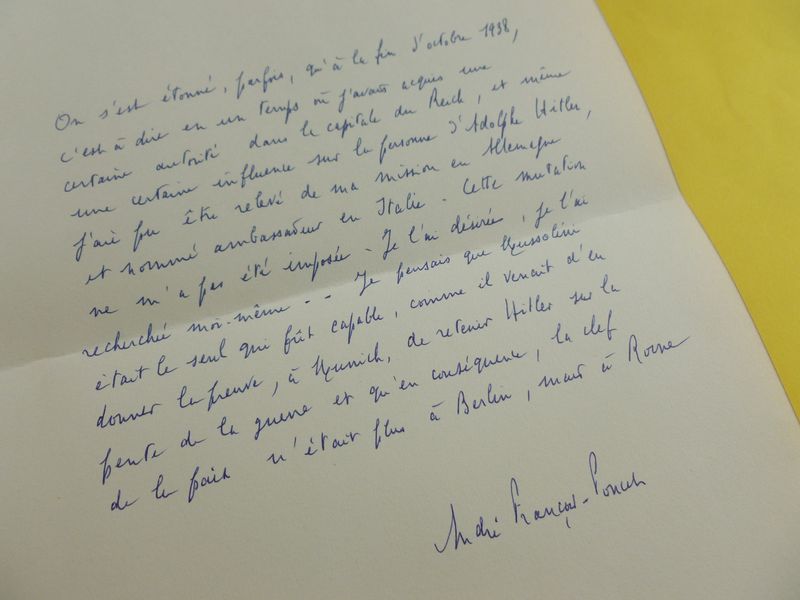 On s'est étonné, parfois, qu'à la fin d'octobre 1938,
c'est à dire en un temps où j'avais acquis une
certaine autorité dans la capitale du Reich, et même
une certaine influence sur la personne d'Adolphe Hitler,
j'aie pu être relevé de ma mission en Allemagne
et nommé ambassadeur en Italie - Cette mutation
ne m'a pas été imposée - Je l'ai désirée, je l'ai
recherchée moi-même - - Je pensais que Mussolini
était le seul qui fût capable, comme il venait d'en
donner la preuve, à Munich, de retenir Hitler sur la
pente de la guerre et qu'en conséquence, la clef
de la paix n'était plus à Berlin, mais à Rome
André François-Poncet